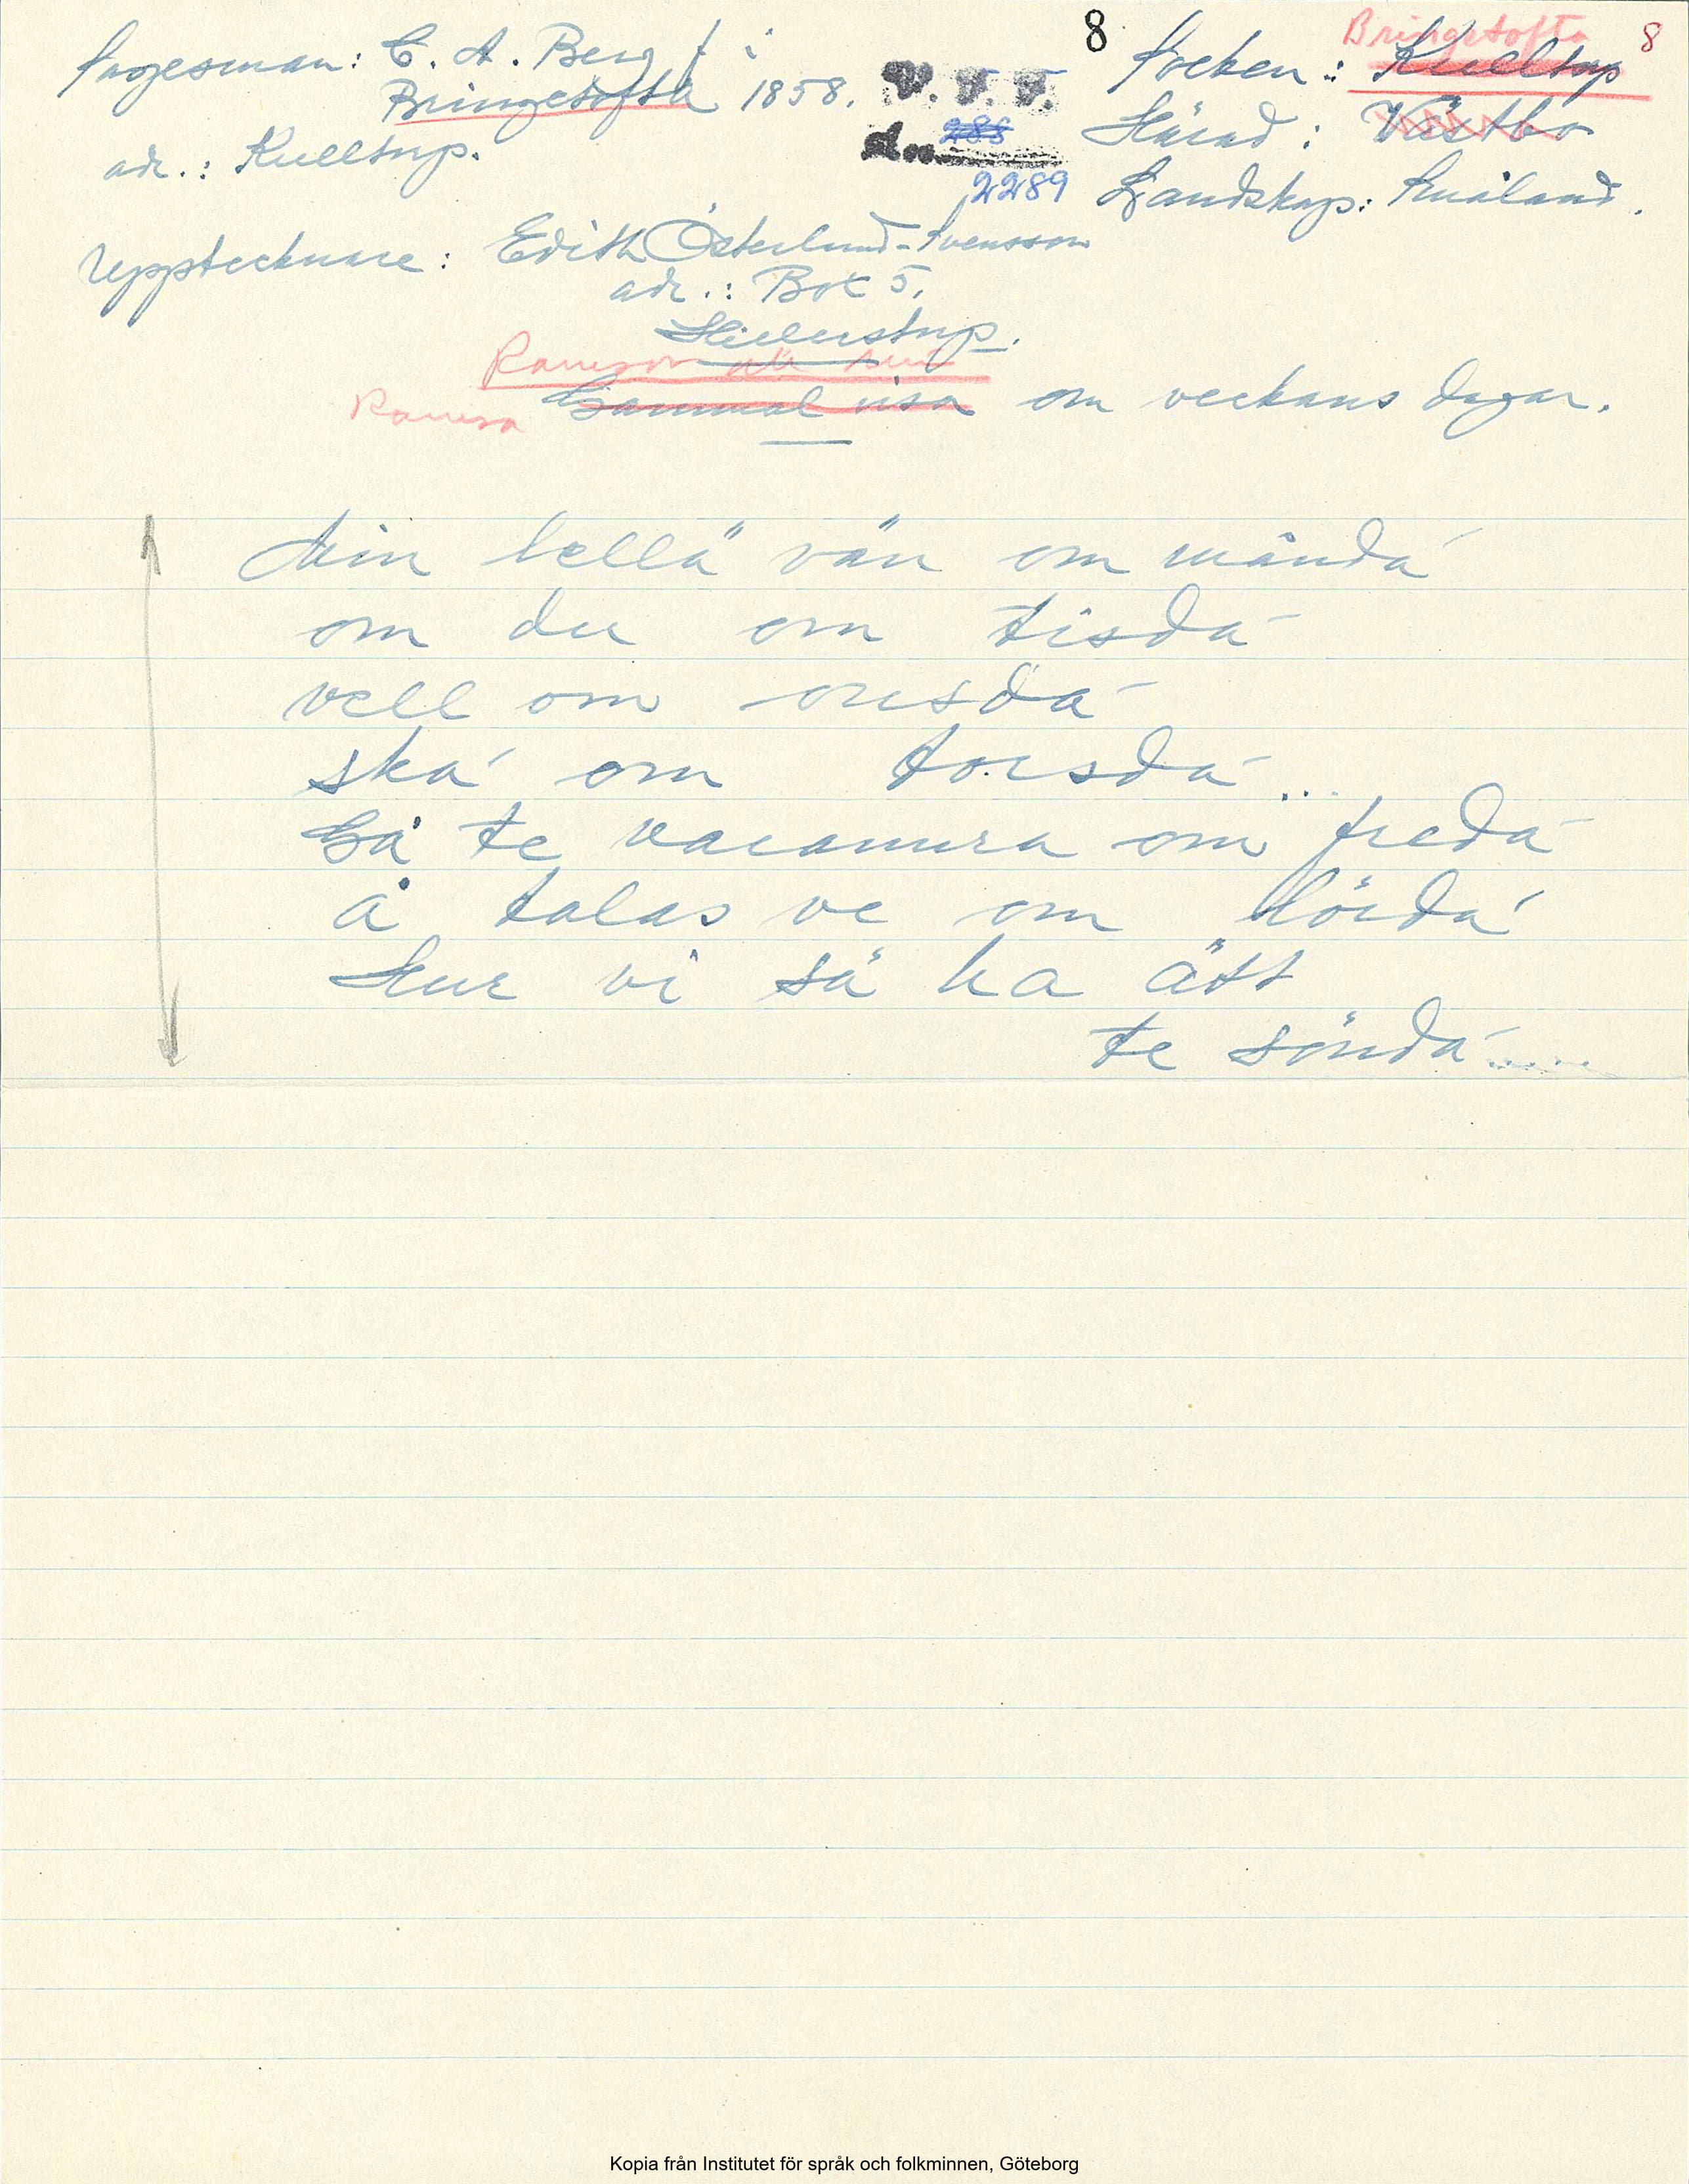 Sagesman: C. A. Berg f. i
Bringetofta 1858.
adr.: Kulltorp.
V. F. F.
288
2289
8
8
Bringetofta
Socken: Kulltorp
Härad: Västbo
Landskap: Småland.
Upptecknare: Edith Österlund-Svensson
adr.: Box 5,
Hillerstorp.
Ramsor
Ramsa Gammal visa om veckans dagar.
Min lellä vän om måndá
om du om tisdá
vell om onsdá
ská om torsdá...
Gå te varannra om fredá
å talas ve om lördá
Hur vi så ha ätt
te söndá......
Kopia från Institutet för språk och folkminnen, Göteborg